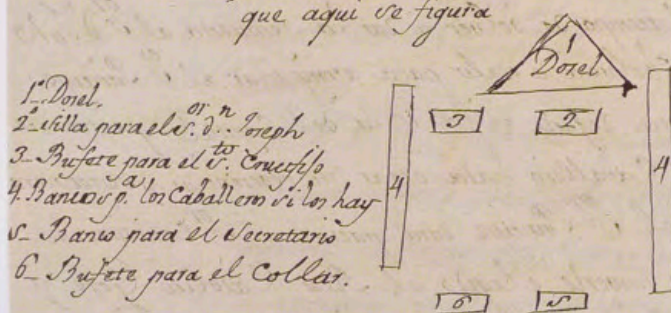 que aqui se figura
1º Dosel.
2º Silla para el S.or d.n Joseph
3_ Bufete para el S.to Crucifijo
4. Bancos p.a los Caballeros si los hay
5_ Banco para el Secretario
6_ Bufete para el Collar.
1
Dosel
3
2
4
4
6
5